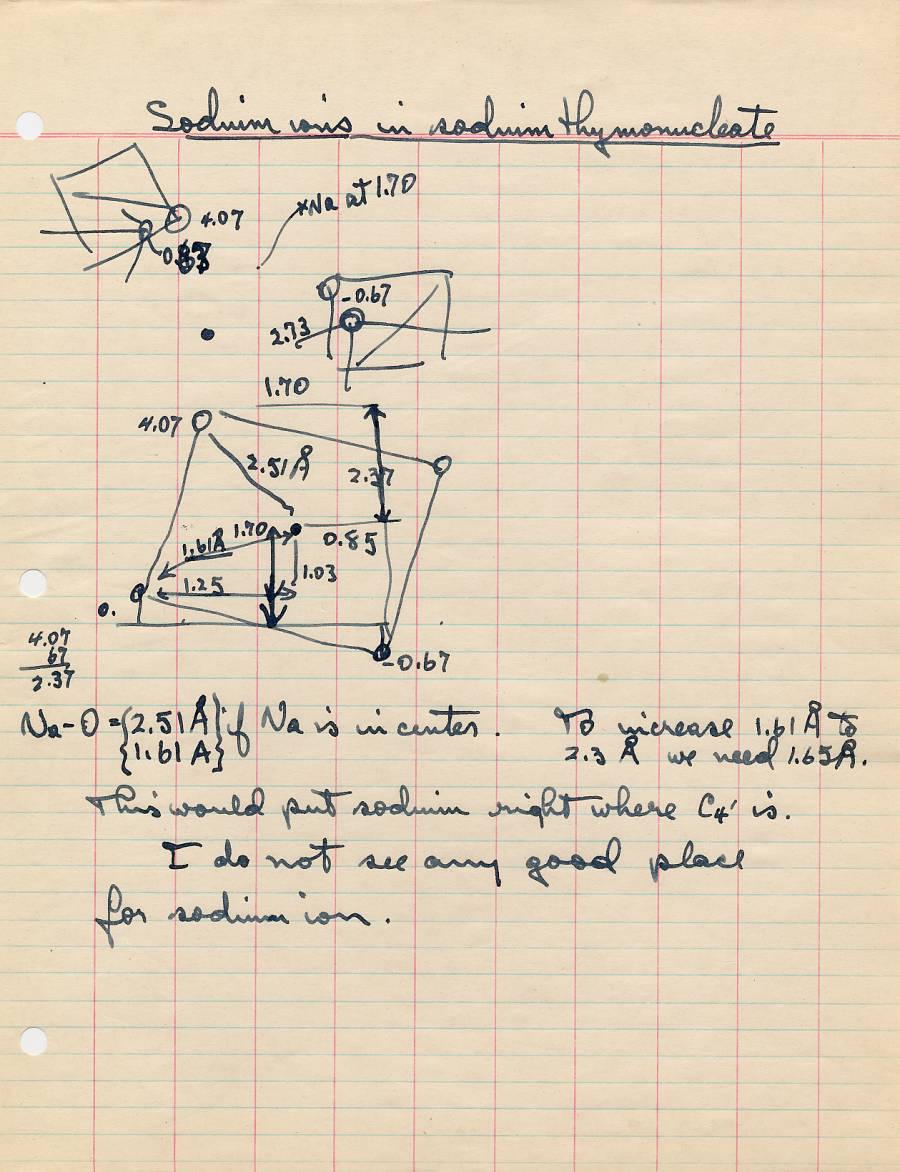 Sodium ions in sodium thymonucleate
*Na at 1.70
4.07
-0.67
2.73
1.70
4.07
2.51 Å
2.37
1.70
1.61Å
0.85
1.03
1.25
0.
-0.67
4.07
67
2.37
Na-O = {2.51 Å} if Na is in center. To increase 1.61 Å to
{1.61 A} 2.3 Å we need 1.65Å.
This would put sodium right where C4' is.
I do not see any good place
for sodium ion.